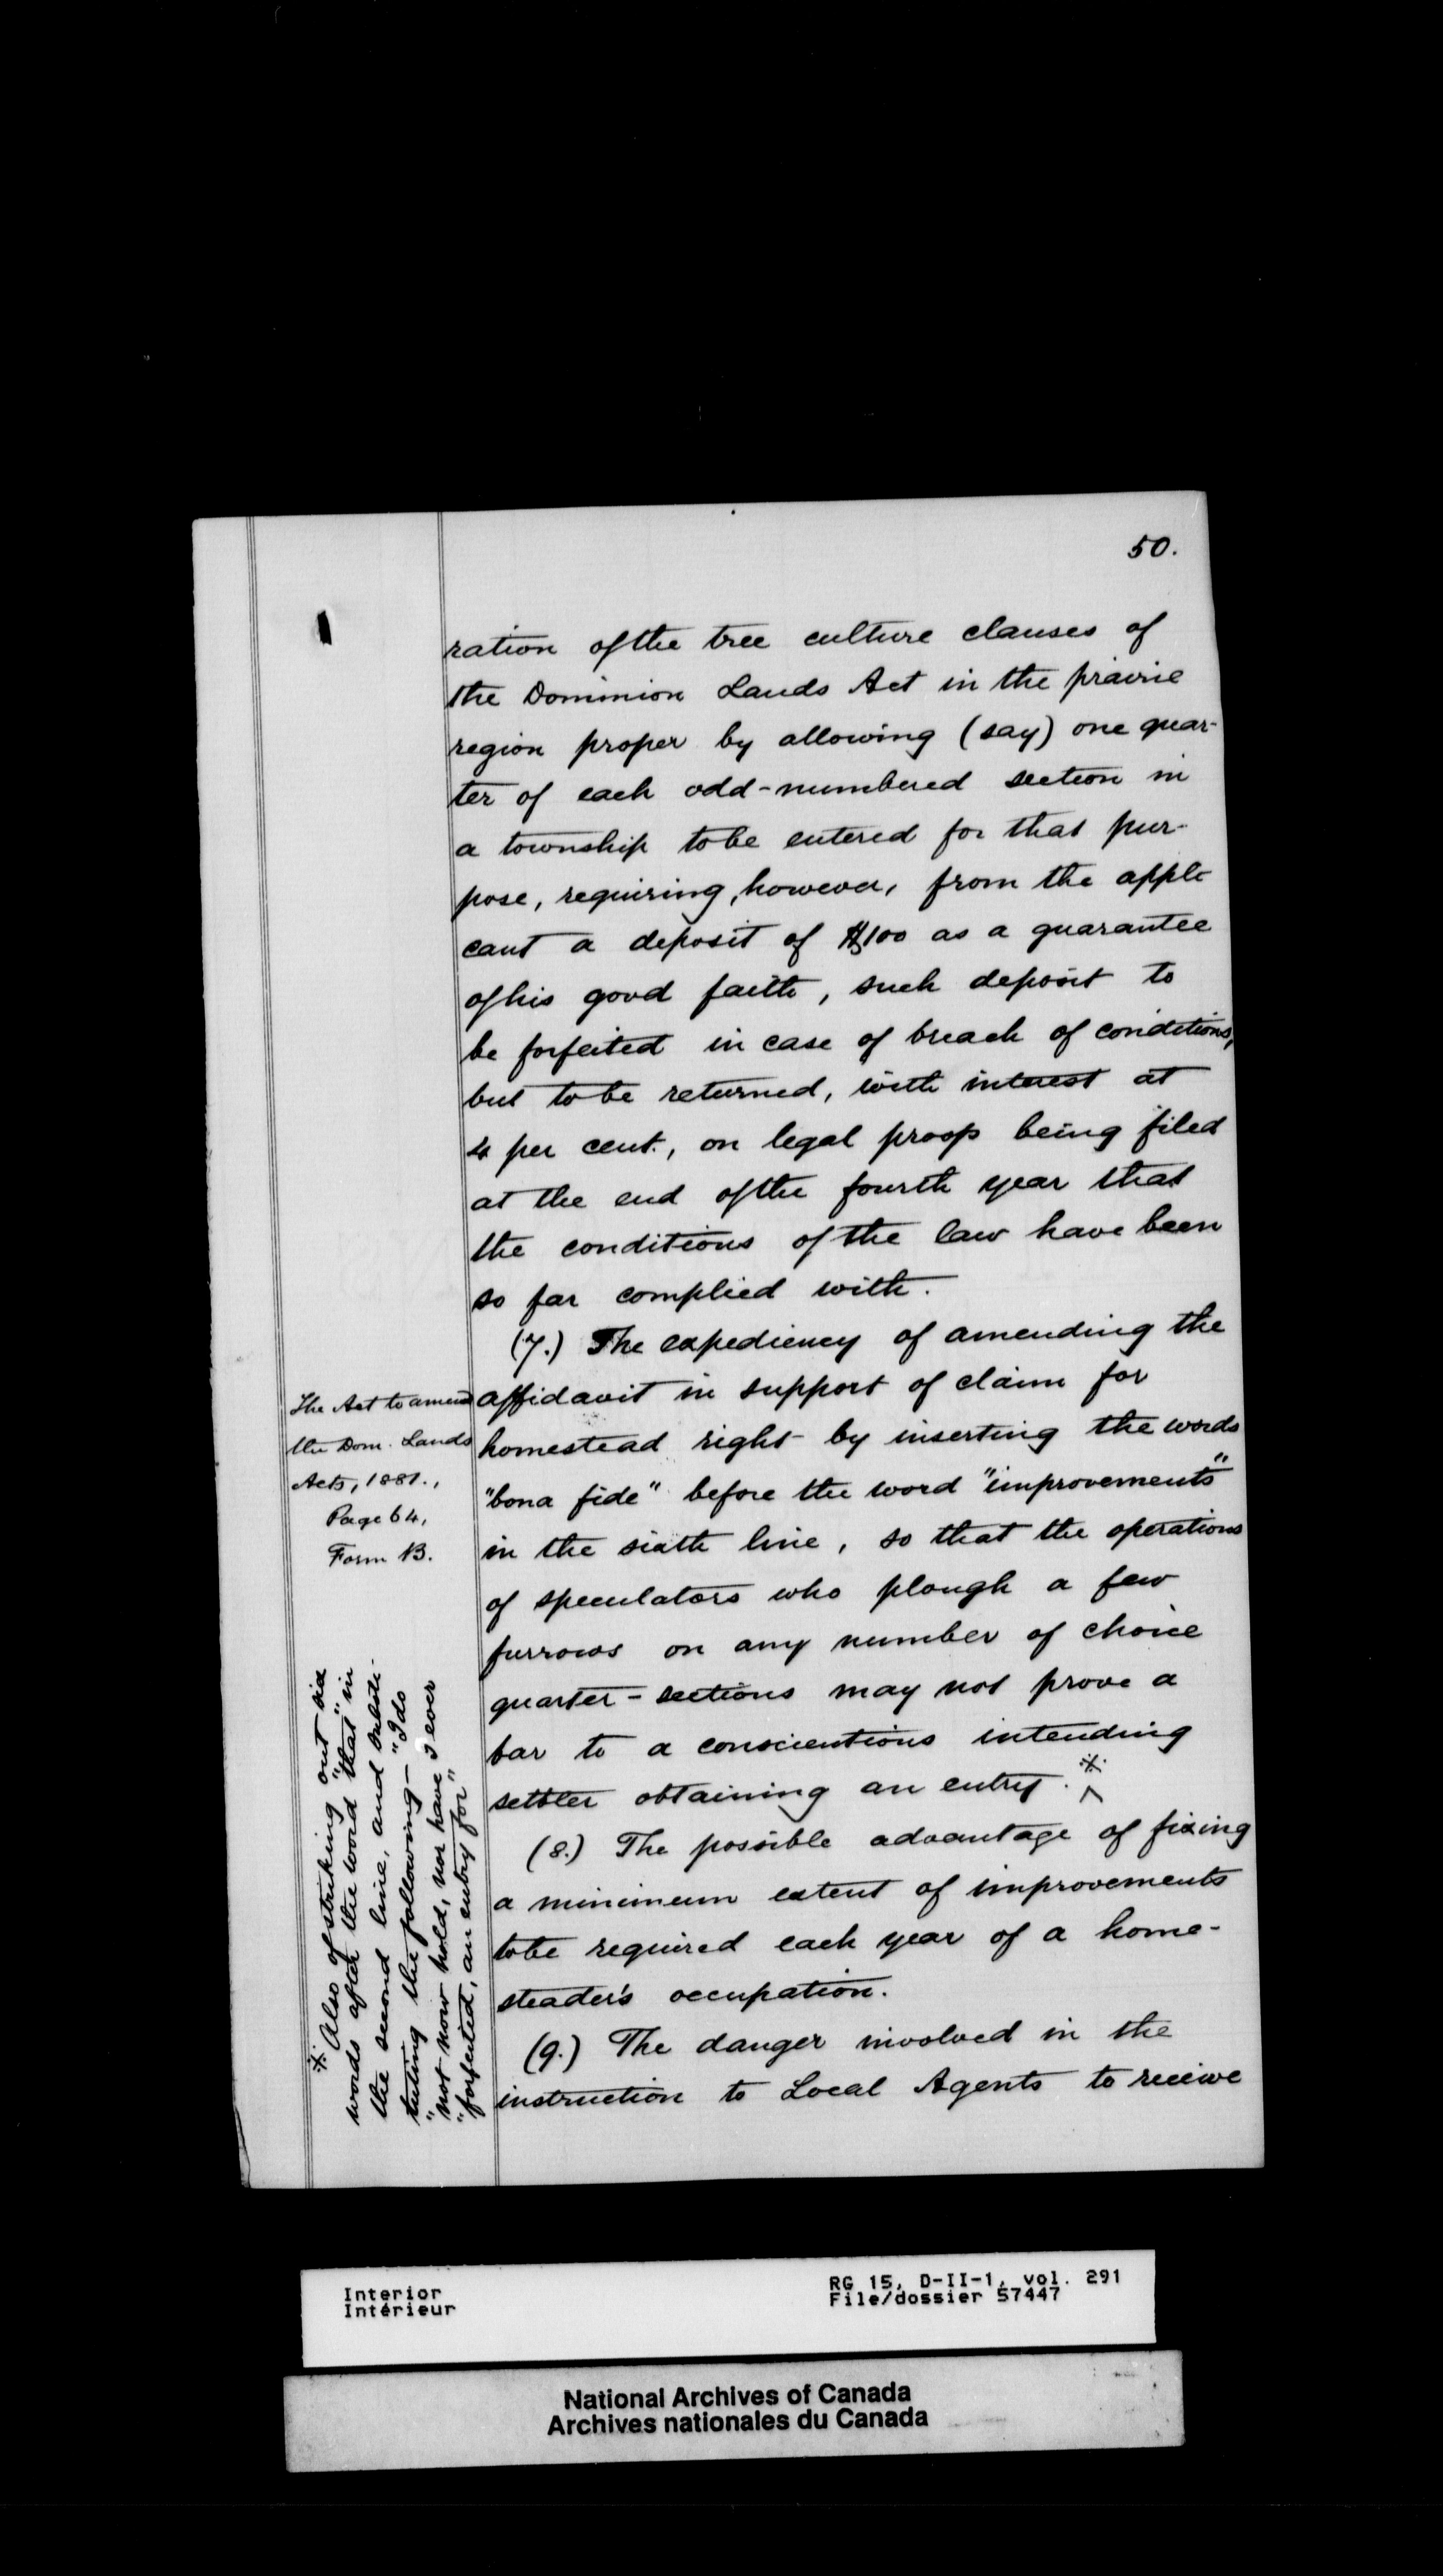 50.
ration of the tree culture clauses of
the Dominion Lands Act in the prairie
region proper by allowing (say) one quar-
ter of each odd-numbered section in
a township to be entered for that pur-
pose, requiring, however, from the appli-
cant a deposit of $100 as a guarantee
of his good faith, such deposit to
be forfeited in case of breach of conditions,
but to be returned, with interest at
4 per cent., on legal proofs being filed
at the end of the fourth year that
the conditions of the law have been
so far complied with.
(7.) The expediency of amending the
affidavit in support of claim for
homestead right by inserting the words
"bona fide" before the word "improvements"
in the sixth line, so that the operations
of speculators who plough a few
furrows on any number of choice
quarter-sections may not prove a
bar to a conscientious intending
settler obtaining an entry. ※
(8.) The possible advantage of fixing
a minimum extent of improvements
to be required each year of a home-
steader's occupation.
(9.) The danger involved in the
instruction to Local Agents to receive
The Act to amend
the Dom. Lands
Acts, 1881.,
Page 64,
Form B.
※ Also of striking out six
words after the word "that" in
the second line, and substi-
tuting the following – "I do
"not now hold, nor have I ever
"forfeited, an entry for"
Interior
Intérieur
RG 15, D-II-1, vol. 291
File/dossier 57447
National Archives of Canada
Archives nationales du Canada